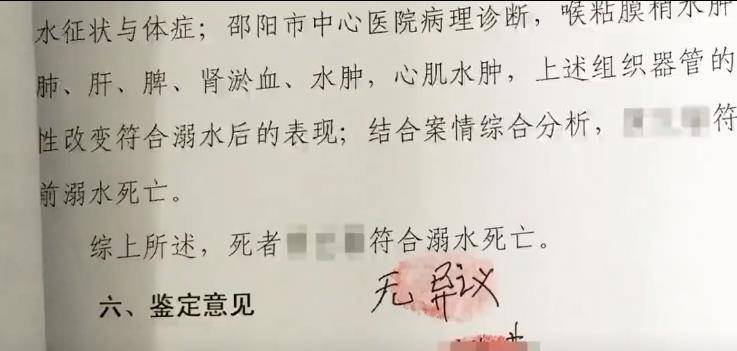 水征状与体症；邵阳市中心医院病理诊断，喉粘膜稍水肿
肺、肝、脾、肾淤血、水肿，心肌水肿，上述组织器管的
性改变符合溺水后的表现；结合案情综合分析，符
前溺水死亡。
综上所述，死者符合溺水死亡。
六、鉴定意见
无异议